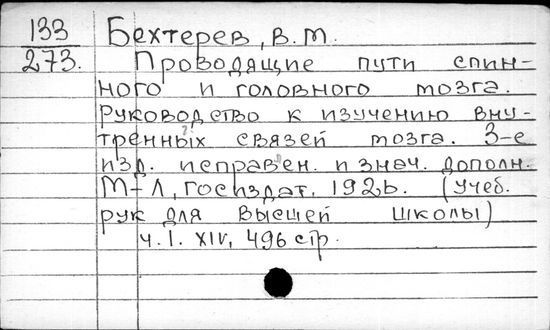 133 Бехтерев, В.М.
273. Проводящие пути спин-
ного и головного мозга.
Руководство к изучению вну-
тренных связей мозга. 3-е
изд. исправлен. и знач. дополн.
М-Л, Госиздат, 1926. (Учеб.
рук для высшей школы)
ч. I. XIV, 496 стр.